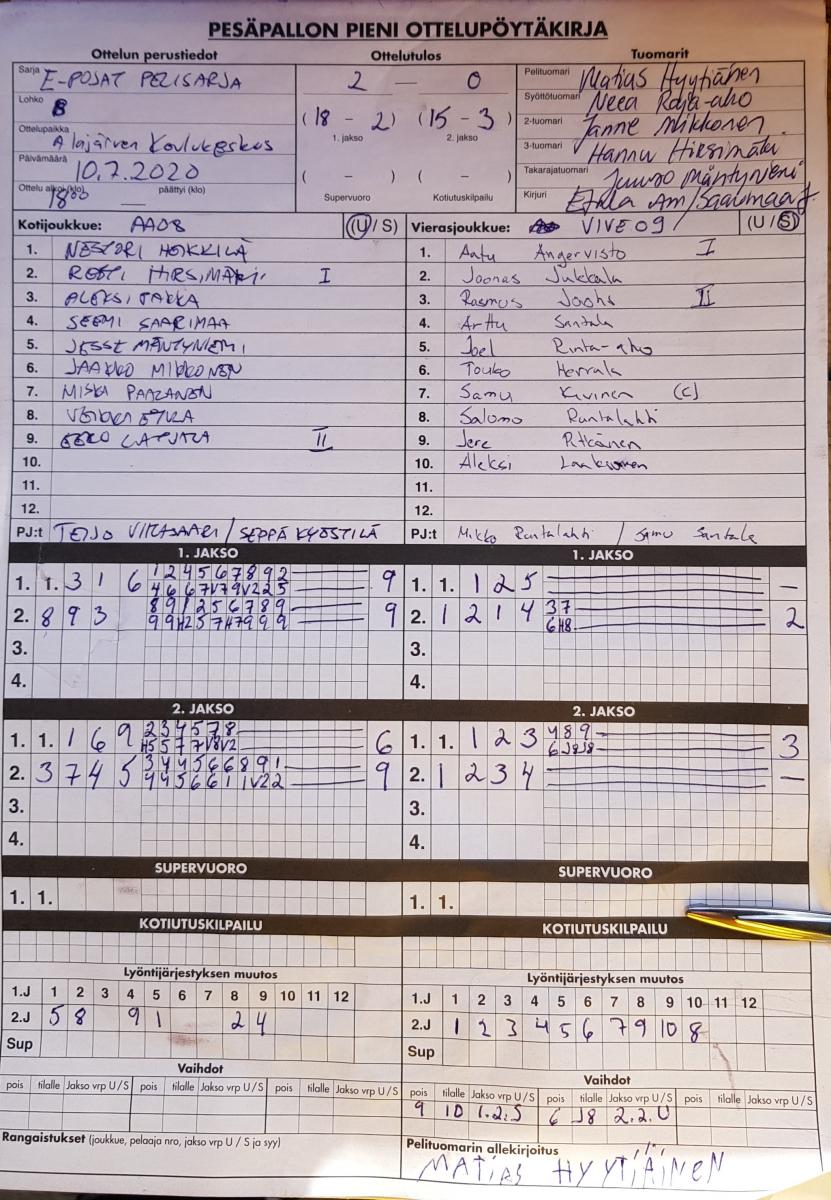 PESÄPALLON PIENI OTTELUPÖYTÄKIRJA
Ottelun perustiedot
Sarja E-POJAT PELISARJA
Lohko B
Ottelupaikka Alajärven Koulukeskus
Päivämäärä 10.7.2020
Ottelu alkoi (klo) 1800 päättyi (klo)
Ottelutulos
2 — 0
(18 - 2) (15 - 3)
1. jakso 2. jakso
( - ) ( - )
Supervuoro Kotiutuskilpailu
Tuomarit
Pelituomari Matias Hyytiänen
Syöttötuomari Neea Raja-aho
2-tuomari Janne Mikkonen
3-tuomari Hannu Hirsimäki
Takarajatuomari Juuso Mäntyniemi
Kirjuri
Kotijoukkue: AA08 (U / S)
1. NESTORI HEIKKILÄ
2. HIRSIMÄKI I
3. ALEKSI
4. SEEMI SAARIMAA
5. JESSE MÄNTYNIEMI
6. JAAKKO MIKKONEN
7. MISKA PAAZANEN
8.
9. EERO II
10.
11.
12.
PJ:t TEIJO / SEPPÄ KYÖSTILÄ
Vierasjoukkue: VIVE 09 (U / S)
1. Aatu Angervisto I
2. Joonas Jukkala
3. Rasmus II
4. Arttu Santala
5. Joel Rinta-aho
6. Touko Herrala
7. Samu Kivinen (C)
8. Salomo Rantalahti
9. Jere Pitkänen
10. Aleksi Laakkonen
11.
12.
PJ:t Mikko Rantalahti / Samu Santala
1. JAKSO
1. 1. 3 1 6 1 2 4 5 6 7 8 9 2 9
2. 8 9 3 8 9 1 2 5 6 7 8 9 9
3.
4.
1. JAKSO
1. 1. 1 2 5 —
2. 1 2 1 4 3 7 2
6 H8
3.
4.
2. JAKSO
1. 1. 1 6 9 2 3 4 5 7 8 6
H5 5 7 7 V8 V2
2. 3 7 4 5 3 4 4 5 6 6 8 9 1 9
4 4 5 6 6 1 1 V2 2
3.
4.
2. JAKSO
1. 1. 1 2 3 4 8 9 3
6 J8 J8
2. 1 2 3 4 —
3.
4.
SUPERVUORO
1. 1.
SUPERVUORO
1. 1.
KOTIUTUSKILPAILU
KOTIUTUSKILPAILU
Lyöntijärjestyksen muutos
1.J 1 2 3 4 5 6 7 8 9 10 11 12
2.J 5 8 9 1 2 4
Sup
Lyöntijärjestyksen muutos
1.J 1 2 3 4 5 6 7 8 9 10 11 12
2.J 1 2 3 4 5 6 7 9 10 8
Sup
Vaihdot
pois tilalle Jakso vrp U / S pois tilalle Jakso vrp U / S pois tilalle Jakso vrp U / S
Vaihdot
pois tilalle Jakso vrp U / S pois tilalle Jakso vrp U / S pois tilalle Jakso vrp U / S
9 10 1.2.S 6 J8 2.2.U
Rangaistukset (joukkue, pelaaja nro, jakso vrp U / S ja syy)
Pelituomarin allekirjoitus
MATIAS HYYTIÄINEN